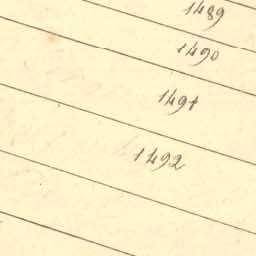 1489
1490
1491
1492